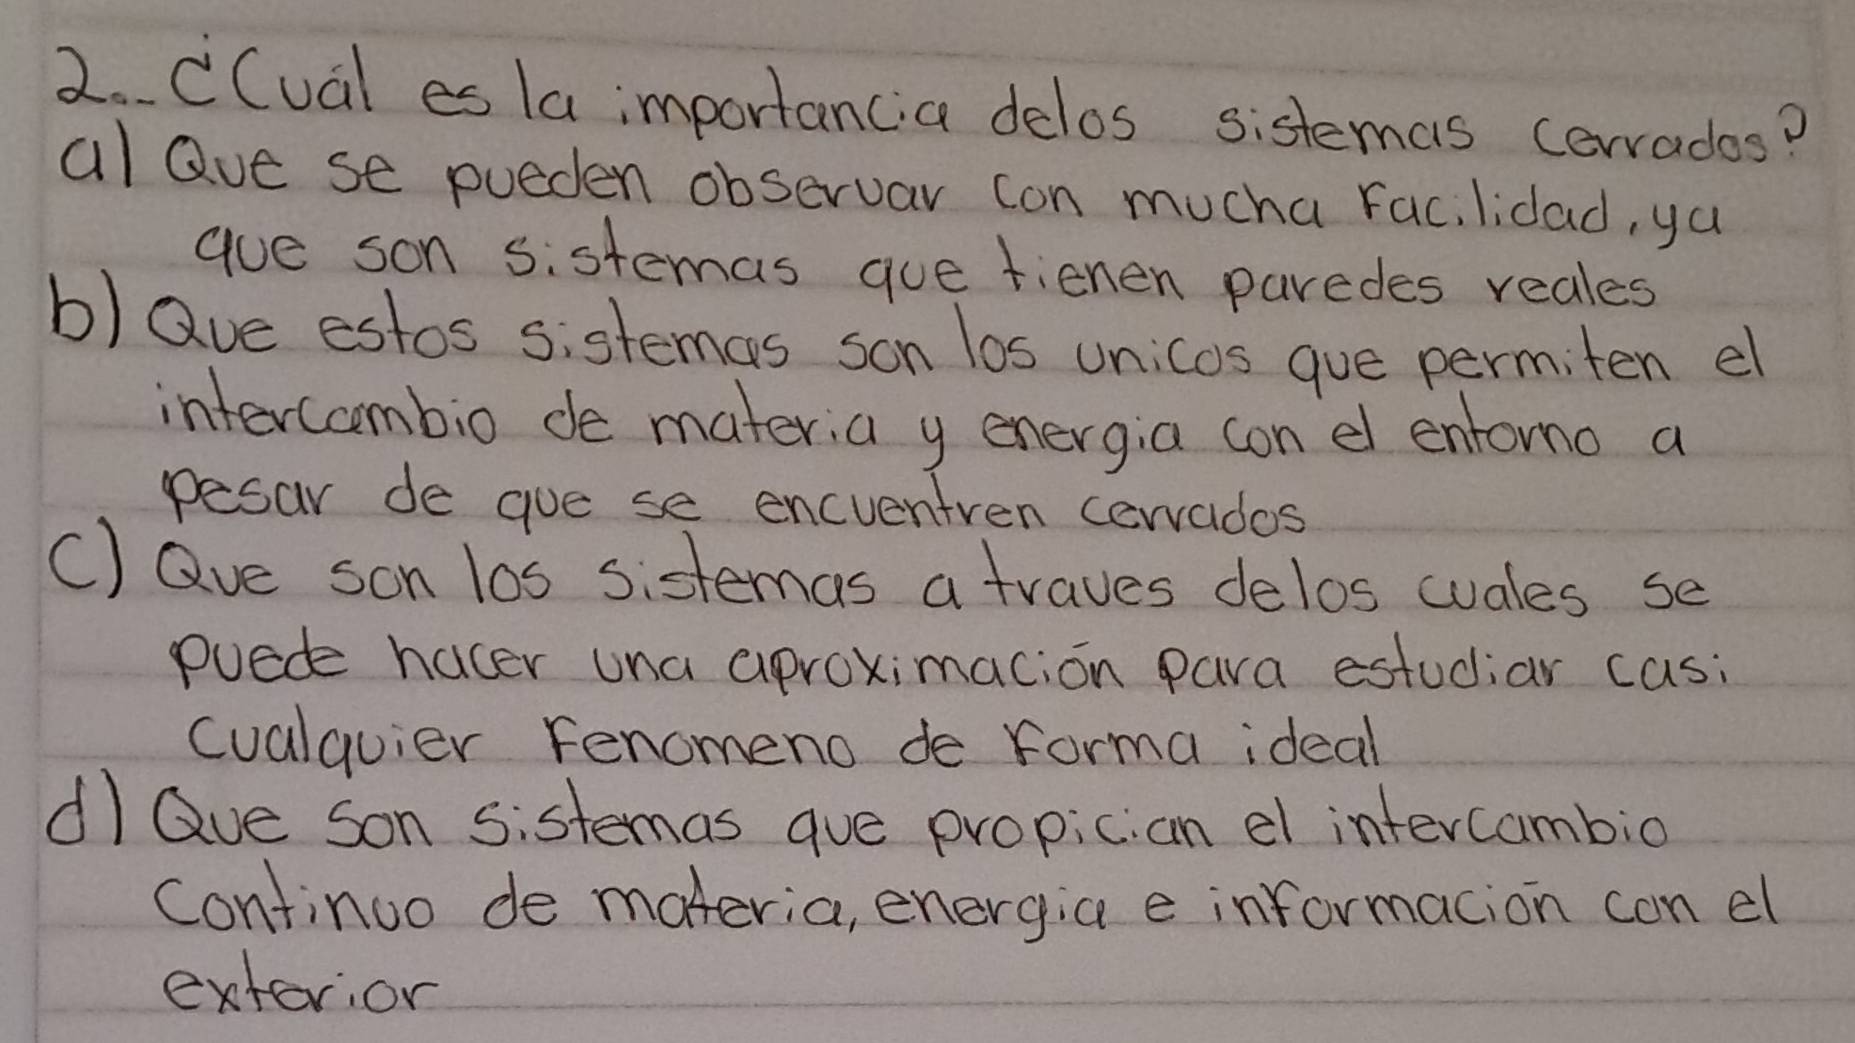 2.- ¿Cuál es la importancia delos sistemas cerrados?
a) Que se pueden observar con mucha Facilidad, ya
que son sistemas que tienen paredes reales
b) Que estos sistemas son los unicos que permiten el
intercambio de materia y energia con el entorno a
pesar de que se encuentren cerrados
c) Que son los sistemas a traves delos cuales se
puede hacer una aproximación para estudiar casi
cualquier Fenomeno de Forma ideal
d) Que son sistemas que propician el intercambio
continuo de materia, energia e información con el
exterior